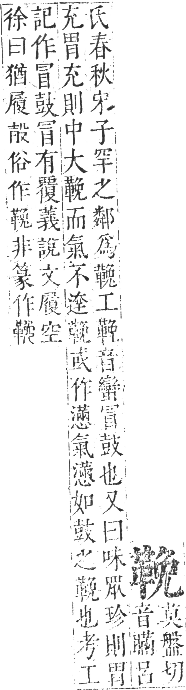 鞔
莫盤切
音瞞呂
氏春秋宋子罕之鄰爲鞔工鞔音蠻冒鼓也又曰味眾珍則胃
充胃充則中大鞔而氣不達鞔或作懣氣懣如鼓之鞔也考工
記作冒鼓冒有覆義說文履空
徐曰猶履殻俗作鞔非篆作